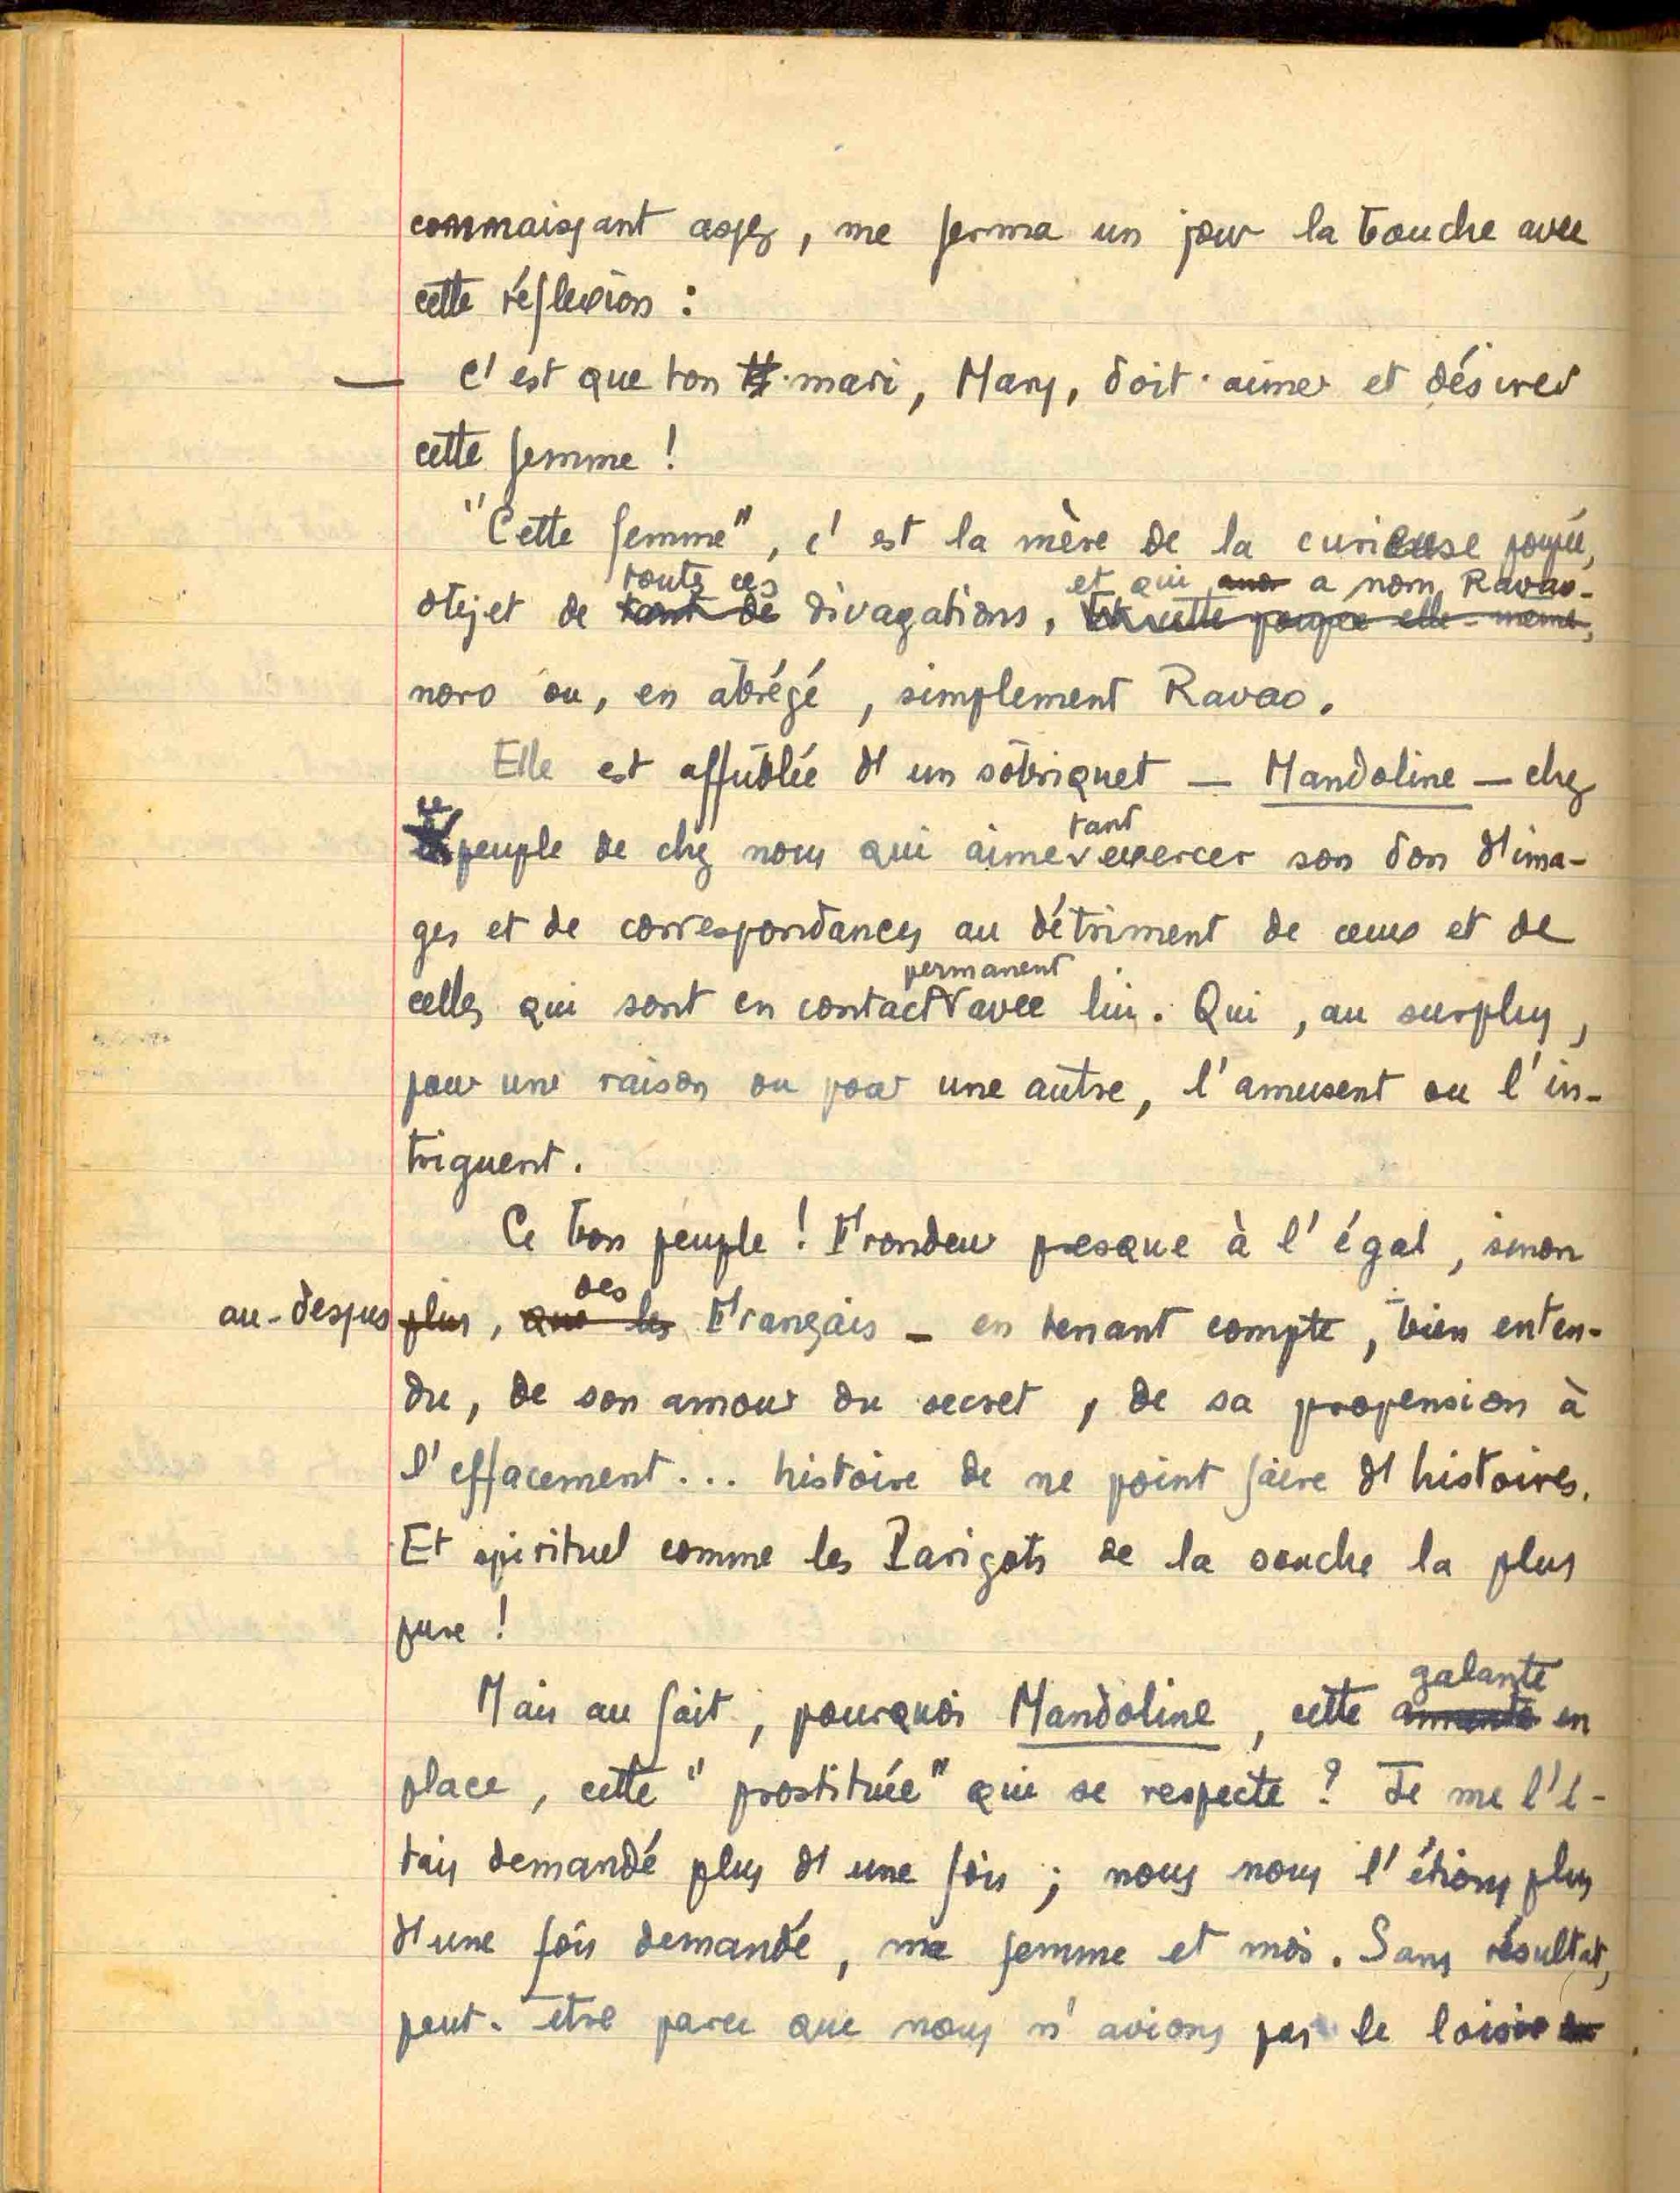 connaissant assez, me ferma un jour la bouche avec
cette réflexion :
— C'est que ton mari, Mary, doit aimer et désirer
cette femme !
"Cette femme", c'est la mère de la curieuse poupée,
toutes ces et qui a nom Ravao-
objet de tant de divagations, cette poupée elle-même,
noro ou, en abrégé, simplement Ravao.
Elle est affublée d'un sobriquet — Mandoline — chez
ce tant
peuple de chez nous qui aime exercer son don d'ima-
ges et de correspondances au détriment de ceux et de
permanent
celles qui sont en contact avec lui. Qui, au surplus,
pour une raison ou pour une autre, l'amusent ou l'in-
triguent.
Ce bon peuple ! Frondeur presque à l'égal, sinon
des
au-dessus plus, que les Français — en tenant compte, bien enten-
du, de son amour du secret, de sa propension à
l'effacement... histoire de ne point faire d'histoires.
Et spirituel comme les Parigots de la souche la plus
pure !
galante
Mais au fait, pourquoi Mandoline, cette en
place, cette "prostituée" qui se respecte ? Je me l'é-
tais demandé plus d'une fois ; nous nous l'étions plus
d'une fois demandé, ma femme et moi. Sans résultat,
peut-être parce que nous n'avions pas le loisir